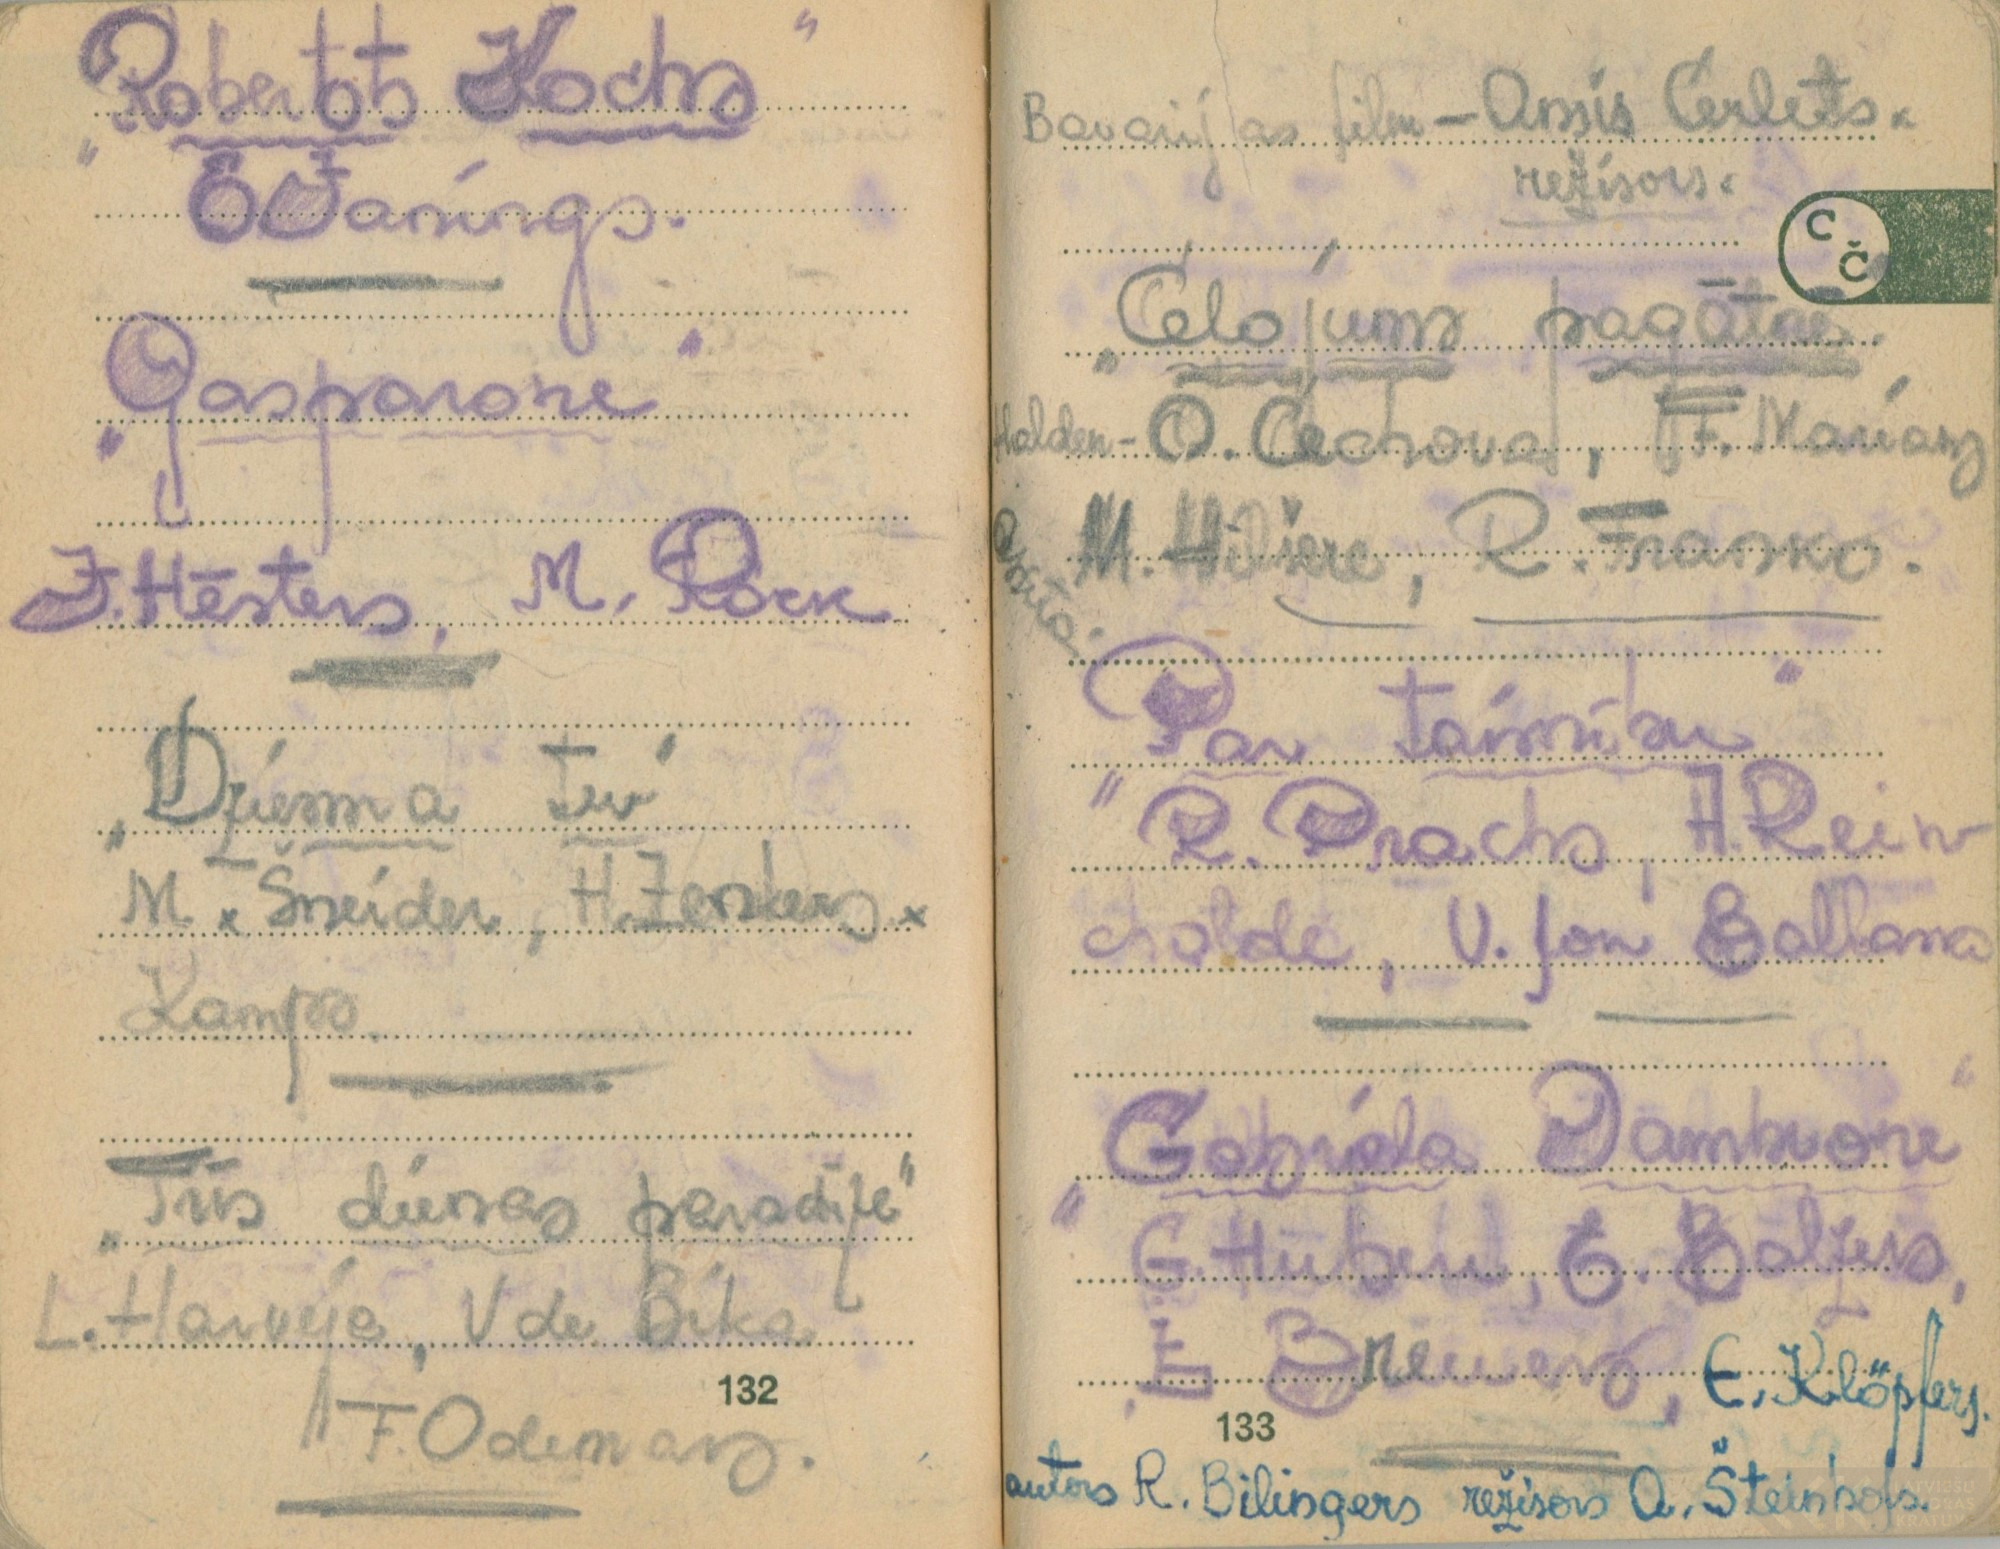 "Roberts Kochs"
E Janings.
"Gasparone"
J. Hēsters, M. Rock
"Dziesma tev
M. Šneider, H. Zenkers.
Kamps
"Trīs dienas paradīzē"
L. Harveja, V de Bika
F. Odemars.
132
Bavarijas film - Ansis Cerlets.
režisors.
C
Č
"Ceļojums pagātnē.
O. Čechova, F. Marians
M. Hilšere, R. Franko.
"Par tainību"
R. Prachs, A. Rein
cholde, V. fon Ballana
"Gabriela Dambrone"
G. Hubert, E. Balzers,
E. Klöpfers.
133
autors R. Bilingers režisors A. Šteinhofs.